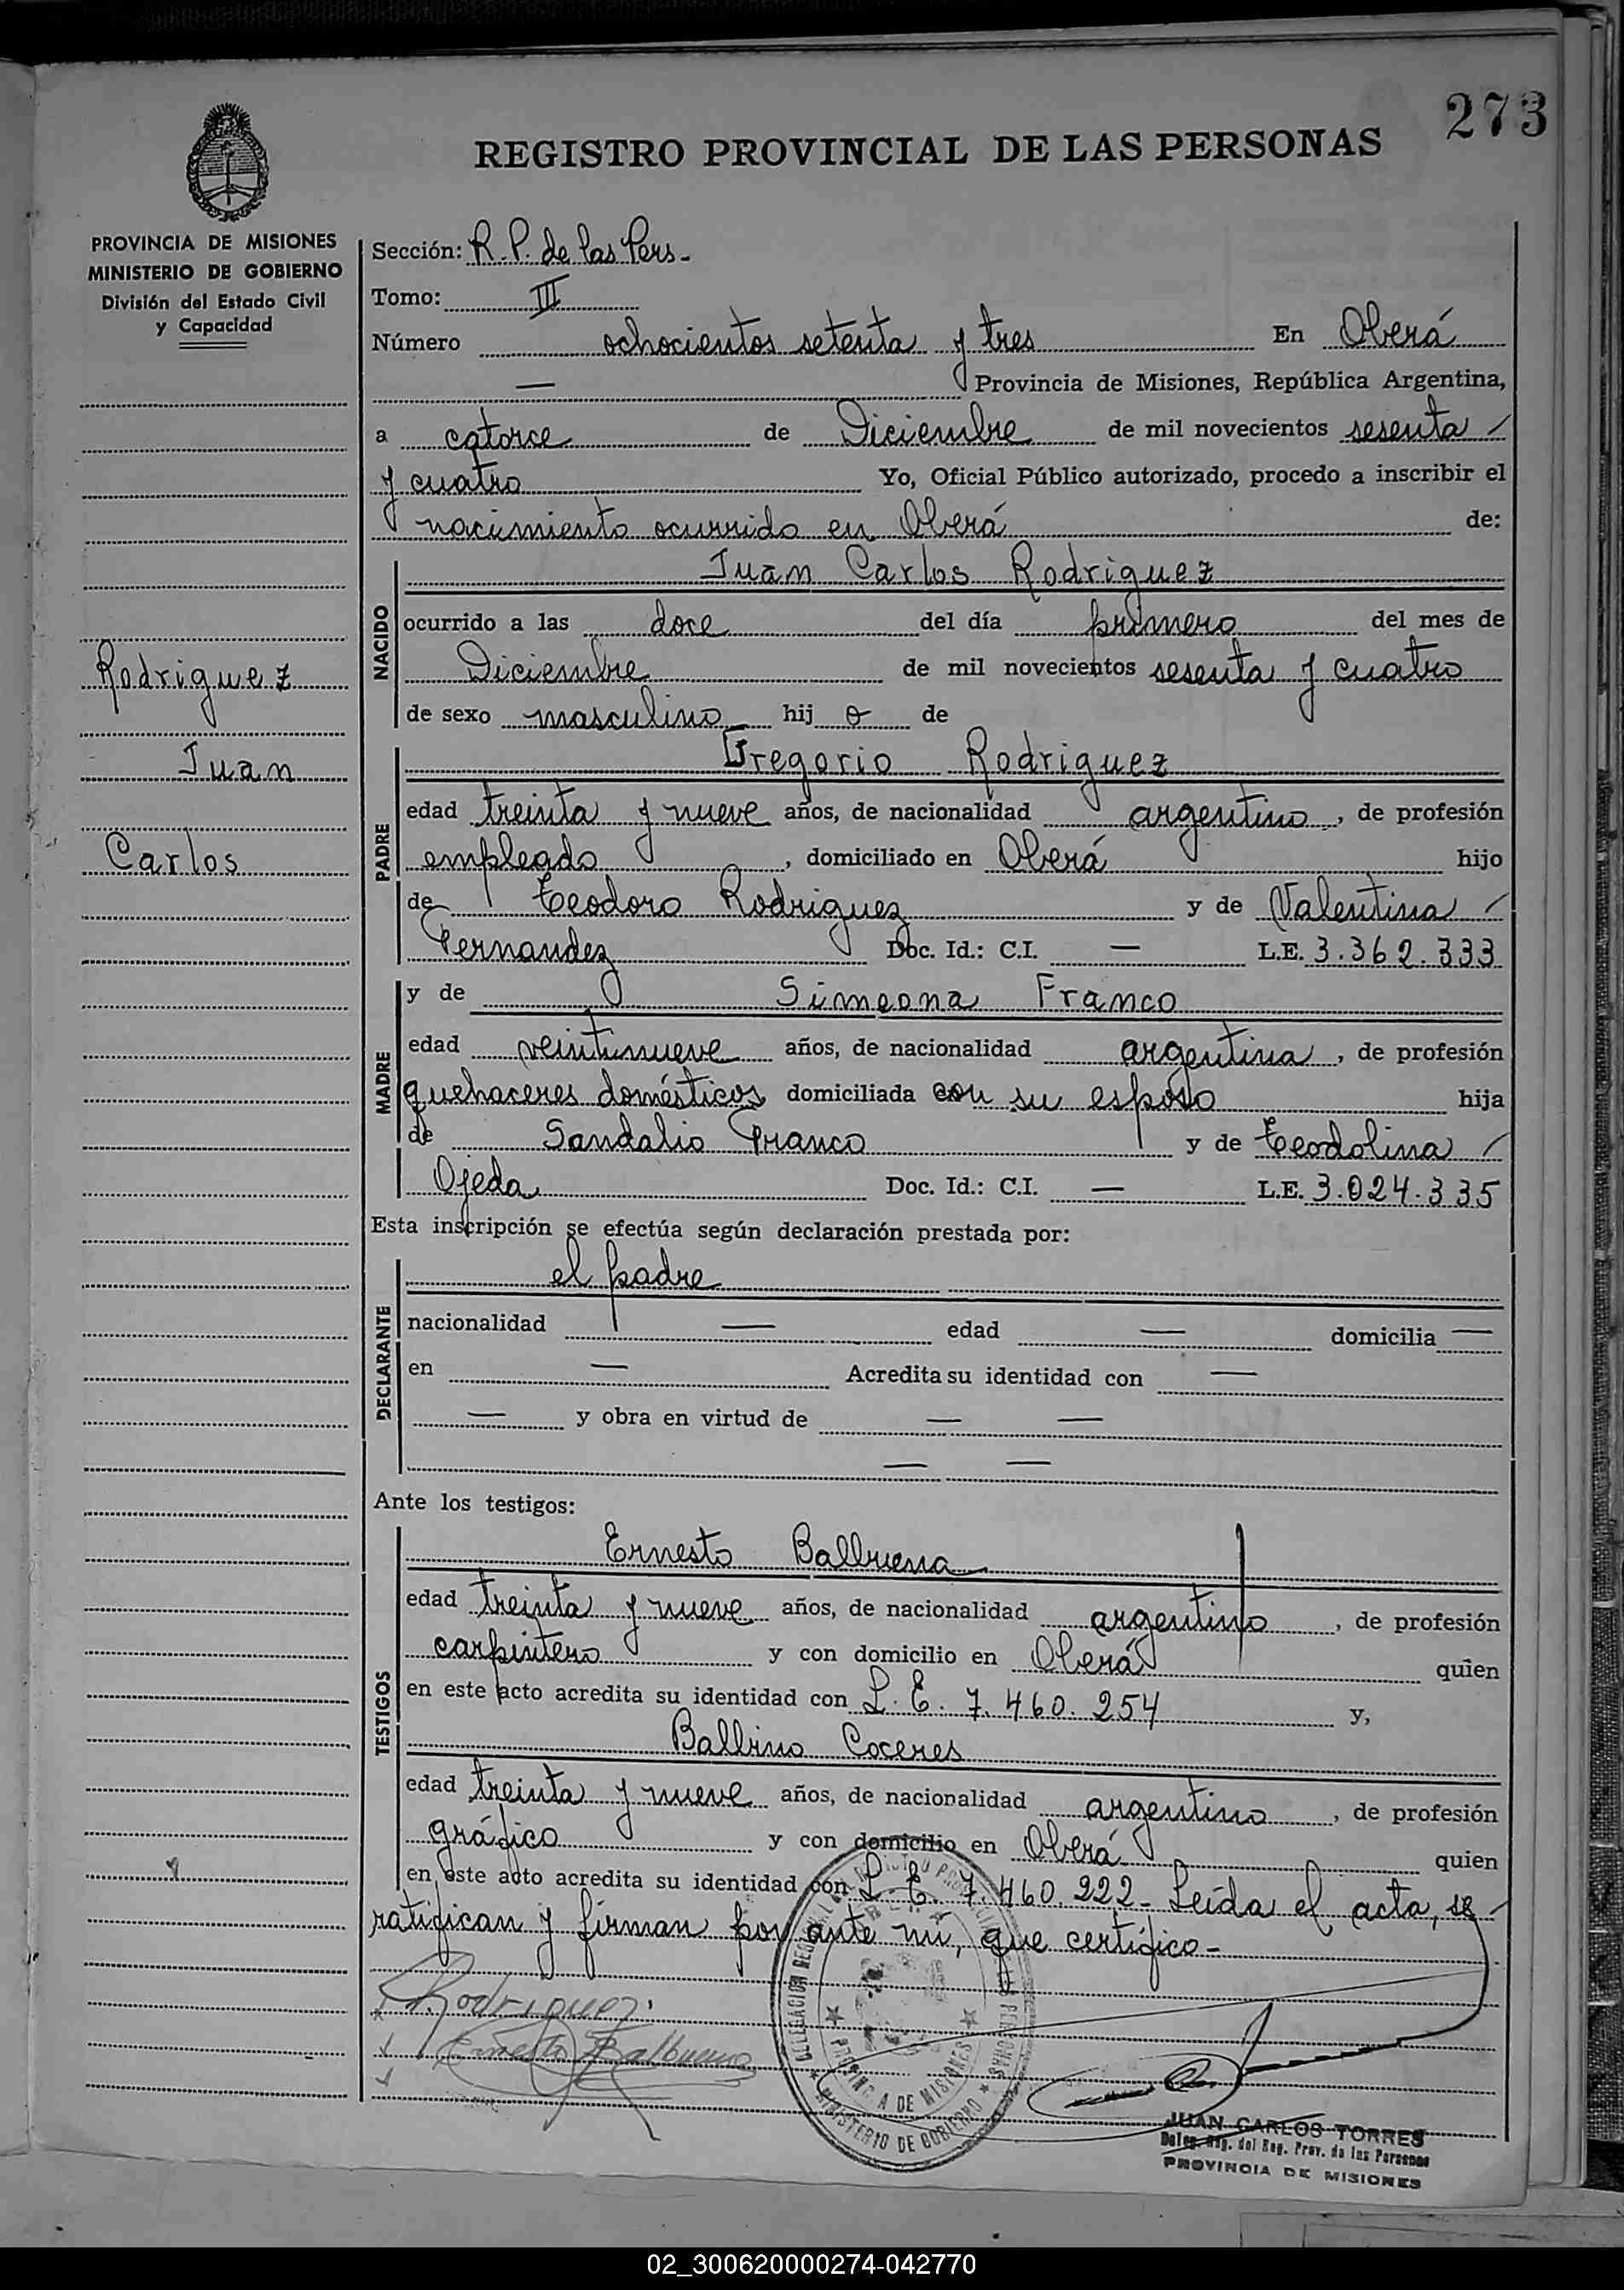 273
REGISTRO PROVINCIAL DE LAS PERSONAS
PROVINCIA DE MISIONES
MINISTERIO DE GOBIERNO
División del Estado Civil
y Capacidad
Rodriguez
Juan
Carlos
Sección: R. P. de las Pers.-
Tomo: III
Número ochocientos setenta y tres En Oberá
— Provincia de Misiones, República Argentina,
a catorce de Diciembre de mil novecientos sesenta
y cuatro Yo, Oficial Público autorizado, procedo a inscribir el
nacimiento ocurrido en Oberá de:
NACIDO
Juan Carlos Rodriguez
ocurrido a las doce del día primero del mes de
Diciembre de mil novecientos sesenta y cuatro
de sexo masculino hij o de
PADRE
Gregorio Rodriguez
edad treinta y nueve años, de nacionalidad argentino, de profesión
empleado, domiciliado en Oberá hijo
de Teodoro Rodriguez y de Valentina
Fernandez Doc. Id.: C.I. — L.E. 3.362.333
MADRE
y de Simeona Franco
edad veintinueve años, de nacionalidad argentina, de profesión
quehaceres domésticos domiciliada con su esposo hija
de Sandalio Franco y de Teodolina
Ojeda Doc. Id.: C.I. — L.E. 3.024.335
Esta inscripción se efectúa según declaración prestada por:
DECLARANTE
el padre
nacionalidad — edad — domicilia —
en — Acredita su identidad con —
— y obra en virtud de — —
— —
Ante los testigos:
TESTIGOS
Ernesto Balbuena
edad treinta y nueve años, de nacionalidad argentino, de profesión
carpintero y con domicilio en Oberá quien
en este acto acredita su identidad con L. E. 7.460.254 y,
Balbino Coceres
edad treinta y nueve años, de nacionalidad argentino, de profesión
gráfico y con domicilio en Oberá quien
en este acto acredita su identidad con L. E. 7.460.222- Leída el acta, se
ratifican y firman por ante mi, que certifico-
Rodriguez
Ernesto Balbuena
PROVINCIA DE MISIONES
MINISTERIO DE GOBIERNO
JUAN CARLOS TORRES
Deleg. Reg. del Reg. Prov. de las Personas
PROVINCIA DE MISIONES
02_300620000274-042770